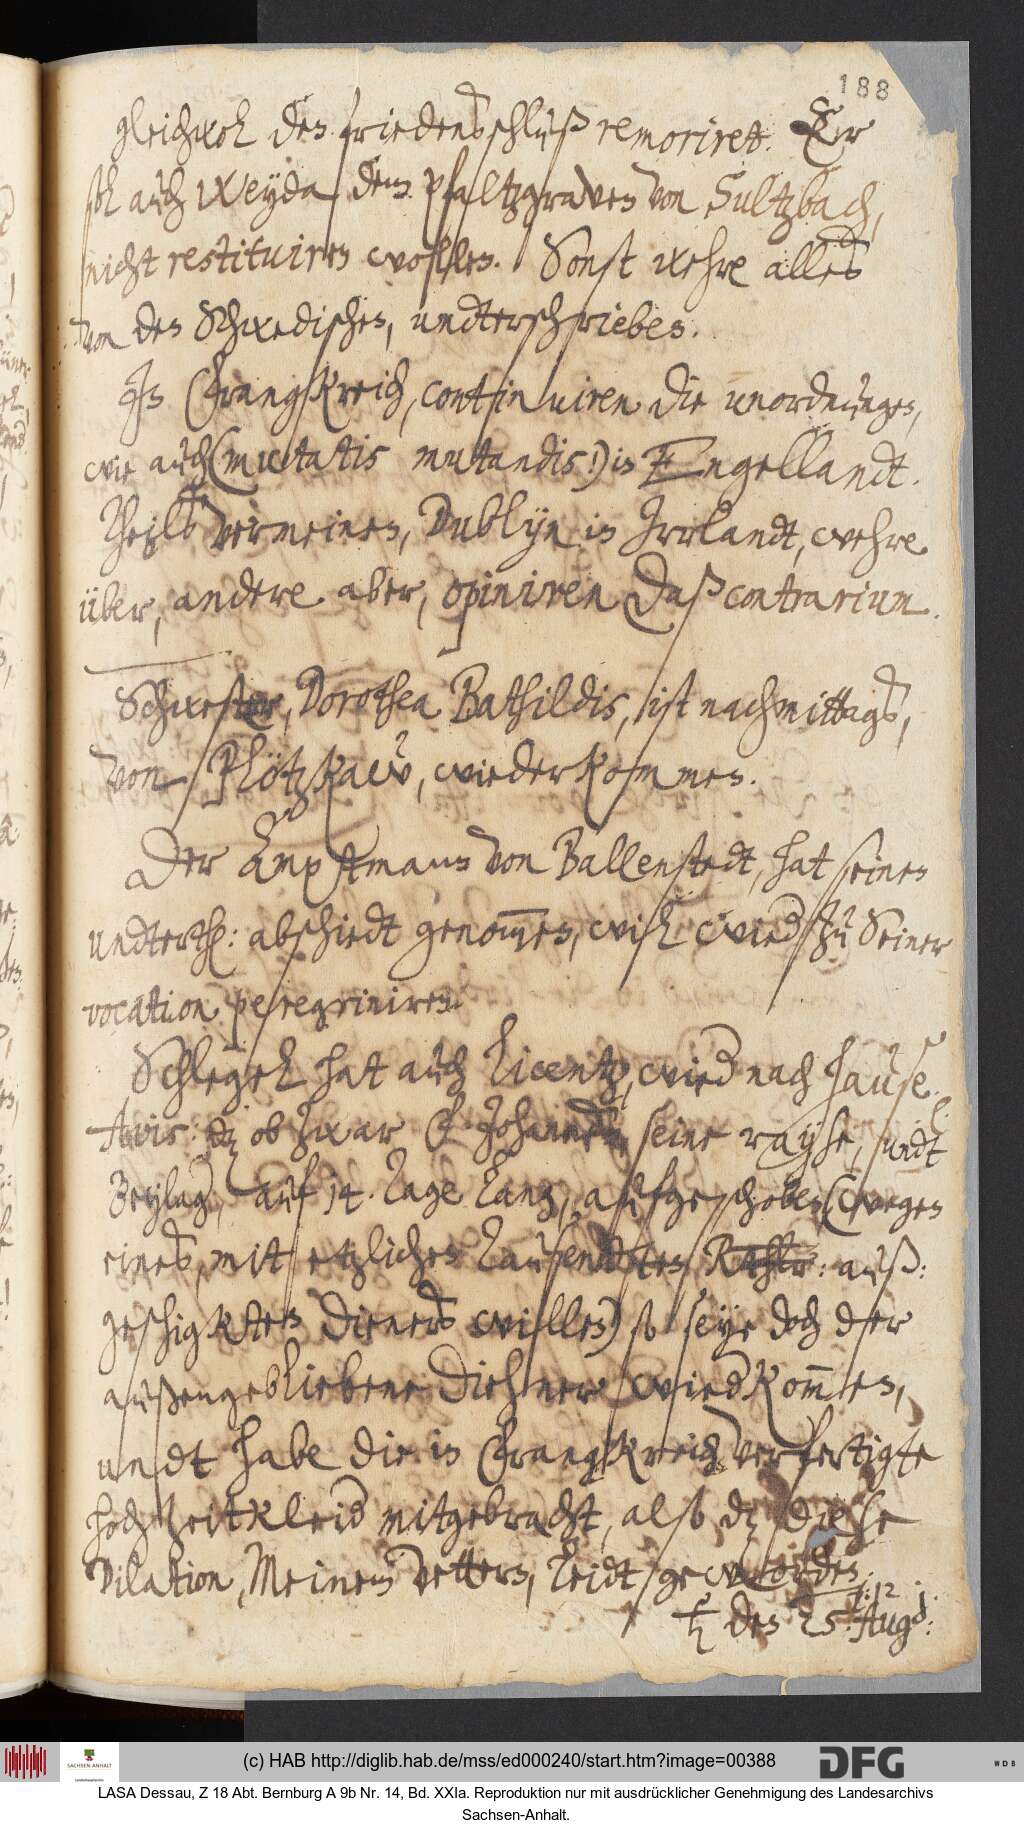 188
gleichwol den friedensschluß remoriret. Er
soll auch Weyda dem Pfaltzgraven von Sultzbach,
nicht restituiren wollen. Sonst wehre alles
von den Schwedischen, undterschrieben.
In Frangkreich, continuiren die unordnungen,
wie auch (mutatis mutandis!) in Engellandt.
Theils vermeinen, Dublyn in Irrlandt, wehre
über, andere aber, opiniren daß contrarium.
Schwester, Dorothea Bathildis, ist nachmittags,
von Plötzkaw, wiederkommen.
Der Amptmann von Ballenstedt, hat seinen
undterth: abschiedt genommen, will wied zu Seiner
vocation peregriniren.
Schlegel hat auch licentz, wied nach hause.
Avis: dz ob zwar F. Johannes, seine rayse, undt
Beylag, auf 14. Tage lang, aufgeschoben (wegen
eines, mit etzlichen Tausendten Rthlr: auß:
geschigkten Dieners willen) so seye doch der
außengebliebene Diehner wiedkommen,
undt habe die in Frangkreich verfertigte
hochzeitkleid mitgebracht, also dz diese
Dilation, Meinem Vettern, leidt geworden.
♄ den 25. Augs:
(c) HAB http://diglib.hab.de/mss/ed000240/start.htm?image=00388
DFG
WDB
SACHSEN-ANHALT
LASA Dessau, Z 18 Abt. Bernburg A 9b Nr. 14, Bd. XXIa. Reproduktion nur mit ausdrücklicher Genehmigung des Landesarchivs
Sachsen-Anhalt.